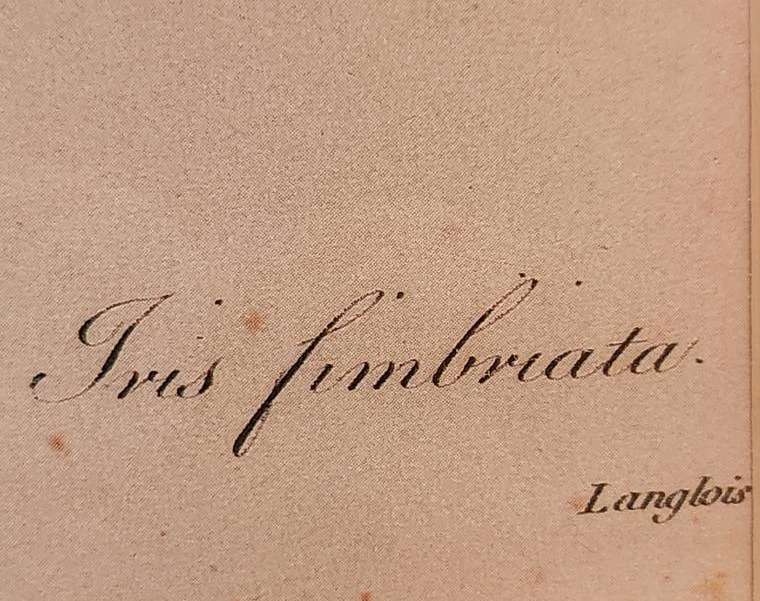 Iris fimbriata.
Langlois